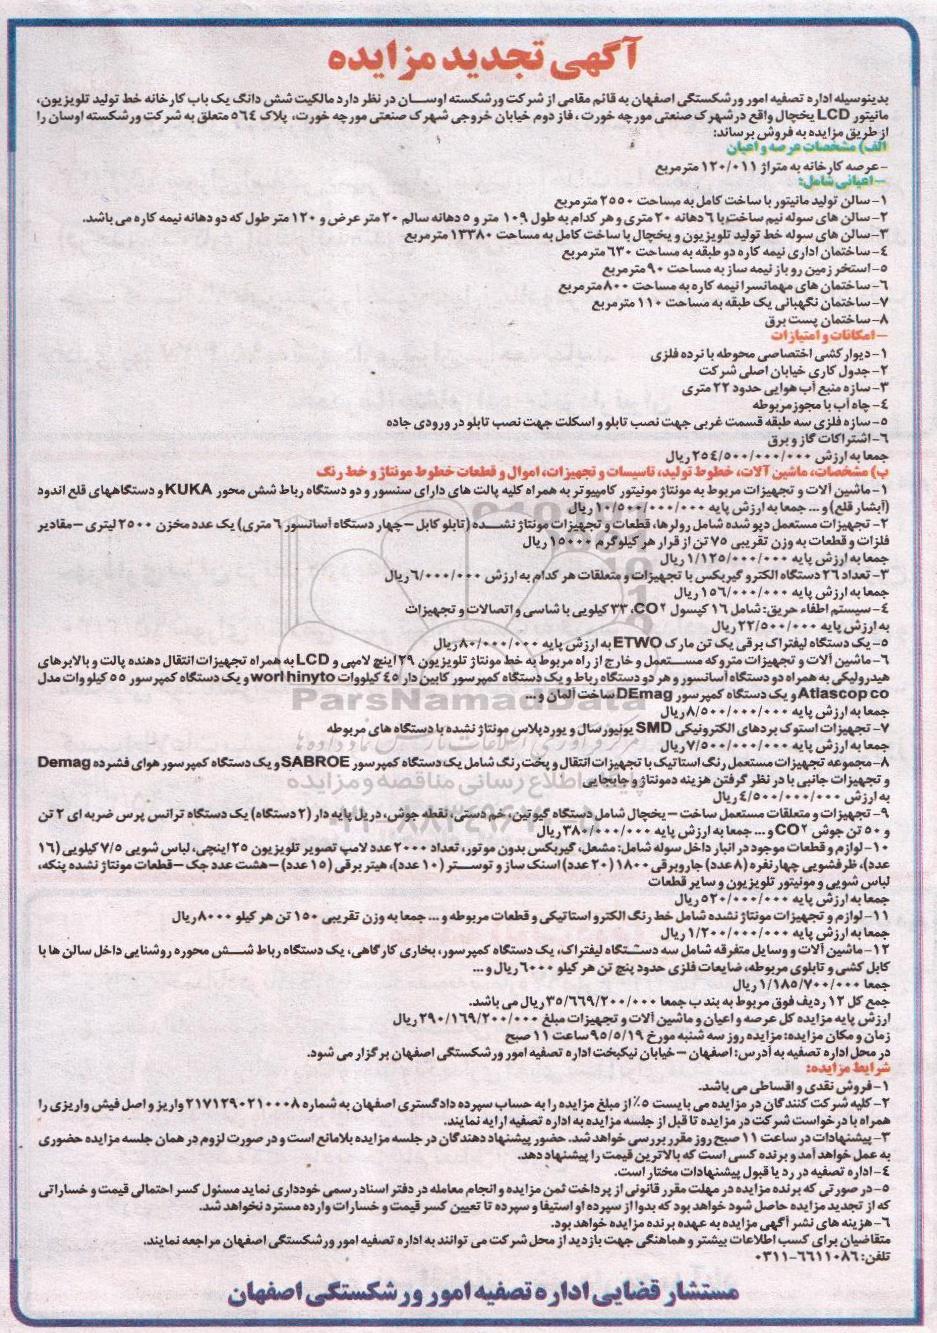 آگهی تجدید مزایده
بدینوسیله اداره تصفیه امور ورشکستگی اصفهان به قائم مقامی از شرکت ورشکسته اوسان در نظر دارد مالکیت شش دانگ یک باب کارخانه خط تولید تلویزیون،
مانیتور LCD یخچال واقع در شهرک صنعتی مورچه خورت ، فاز دوم خیابان خروجی شهرک صنعتی مورچه خورت، پلاک ٥٦٤ متعلق به شرکت ورشکسته اوسان را
از طریق مزایده به فروش برساند:
الف) مشخصات عرصه و اعیان
-عرصه کارخانه به متراژ ١٢٠/٠١١ مترمربع
-اعیانی شامل:
١-سالن تولید مانیتور با ساخت کامل به مساحت ٢٥٥٠ مترمربع
٢-سالن های سوله نیم ساخت با ٦ دهانه ٢٠ متری و هر کدام به طول ١٠٩ متر و ٥ دهانه سالم ٢٠ متر عرض و ١٢٠ متر طول که دو دهانه نیمه کاره می باشد.
٣-سالن های سوله خط تولید تلویزیون و یخچال با ساخت کامل به مساحت ١٣٣٨٠ مترمربع
٤-ساختمان اداری نیمه کاره دو طبقه به مساحت ٦٣٠ مترمربع
٥-استخر زمین رو باز نیمه ساز به مساحت ٩٠ مترمربع
٦-ساختمان های مهمانسرا نیمه کاره به مساحت ٨٠٠ مترمربع
٧-ساختمان نگهبانی یک طبقه به مساحت ١١٠ مترمربع
٨-ساختمان پست برق
-امکانات و امتیازات
١-دیوارکشی اختصاصی محوطه با نرده فلزی
٢-جدول کاری خیابان اصلی شرکت
٣-سازه منبع آب هوایی حدود ٢٢ متری
٤-چاه آب با مجوز مربوطه
٥-سازه فلزی سه طبقه قسمت غربی جهت نصب تابلو و اسکلت جهت نصب تابلو در ورودی جاده
٦-اشتراکات گاز و برق
جمعا به ارزش ٢٥٤/٥٠٠/٠٠٠/٠٠٠ ریال
ب) مشخصات، ماشین آلات، خطوط تولید، تاسیسات و تجهیزات، اموال و قطعات خطوط مونتاژ و خط رنگ
١-ماشین آلات و تجهیزات مربوط به مونتاژ مونیتور کامپیوتر به همراه کلیه پالت های دارای سنسور و دو دستگاه رباط شش محور KUKA و دستگاههای قلع اندود
(آبشار قلع) و ... جمعا به ارزش پایه ١٠/٥٠٠/٠٠٠/٠٠٠ ریال
٢- تجهیزات مستعمل دپو شده شامل رولرها، قطعات و تجهیزات مونتاژ نشده (تابلو کابل -چهار دستگاه آسانسور ٦ متری) یک عدد مخزن ٢٥٠٠ لیتری-مقادیر
فلزات و قطعات به وزن تقریبی ٧٥ تن از قرار هر کیلوگرم ١٥٠٠٠ ریال
جمعا به ارزش پایه ١/١٢٥/٠٠٠/٠٠٠ ریال
٣-تعداد ٢٦ دستگاه الکترو گیربکس با تجهیزات و متعلقات هر کدام به ارزش ٦/٠٠٠/٠٠٠ ریال
جمعا به ارزش پایه ١٥٦/٠٠٠/٠٠٠ ریال
٤-سیستم اطفاء حریق: شامل ١٦ کپسول CO٢، ٣٣ کیلویی با شاسی و اتصالات و تجهیزات
به ارزش پایه ٢٢/٥٠٠/٠٠٠ ریال
٥-یک دستگاه لیفتراک برقی یک تن مارک ETWO به ارزش پایه ٨٠/٠٠٠/٠٠٠ ریال
٦-ماشین آلات و تجهیزات متروکه مستعمل و خارج از راه مربوط به خط مونتاژ تلویزیون ٢٩ اینچ لامپی و LCD به همراه تجهیزات انتقال دهنده پالت و بالابرهای
هیدرولیکی به همراه دو دستگاه آسانسور و هر دو دستگاه رباط و یک دستگاه کمپرسور کابین دار ٤٥ کیلووات worl hinyto و یک دستگاه کمپرسور ٥٥ کیلووات مدل
Atlascop co و یک دستگاه کمپرسور DEmag ساخت آلمان و ...
جمعا به ارزش پایه ٨/٥٠٠/٠٠٠/٠٠٠ ریال
٧- تجهیزات استوک بردهای الکترونیکی SMD یونیورسال و یوردپلاس مونتاژ نشده با دستگاه های مربوطه
جمعا به ارزش پایه ٧/٥٠٠/٠٠٠/٠٠٠ ریال
٨-مجموعه تجهیزات مستعمل رنگ استاتیک با تجهیزات انتقال و پخت رنگ شامل یک دستگاه کمپرسور SABROE و یک دستگاه کمپرسور هوای فشرده Demag
و تجهیزات جانبی با در نظر گرفتن هزینه دمونتاژ و جابجایی
به ارزش ٤/٥٠٠/٠٠٠/٠٠٠ ریال
٩- تجهیزات و متعلقات مستعمل ساخت -یخچال شامل دستگاه گیوتین، خم دستی، نقطه جوش، دریل پایه دار (٢ دستگاه) یک دستگاه ترانس پرس ضربه ای ٢ تن
و ٥٠ تن جوش CO٢ و ... جمعا به ارزش پایه ٣٨٠/٠٠٠/٠٠٠ ریال
١٠-لوازم و قطعات موجود در انبار داخل سوله شامل: مشعل، گیربکس بدون موتور، تعداد ٢٠٠٠ عدد لامپ تصویر تلویزیون ٢٥ اینچی، لباس شویی ٧/٥ کیلویی (١٦
عدد)، ظرفشویی چهارنفره (٨ عدد) جاروبرقی ١٨٠٠ (٢٠ عدد) اسنک ساز و توستر (١٠ عدد)، هیتر برقی (١٥ عدد) -هشت عدد جک-قطعات مونتاژ نشده پنکه،
لباس شویی و مونیتور تلویزیون و سایر قطعات
جمعا به ارزش پایه ٥٢٠/٠٠٠/٠٠٠ ریال
١١-لوازم و تجهیزات مونتاژ نشده شامل خط رنگ الکترو استاتیکی و قطعات مربوطه و ... جمعا به وزن تقریبی ١٥٠ تن هر کیلو ٨٠٠٠ ریال
جمعا به ارزش پایه ١/٢٠٠/٠٠٠/٠٠٠ ریال
١٢-ماشین آلات و وسایل متفرقه شامل سه دستگاه لیفتراک، یک دستگاه کمپرسور، بخاری کارگاهی، یک دستگاه رباط شش محوره روشنایی داخل سالن ها با
کابل کشی و تابلوی مربوطه، ضایعات فلزی حدود پنج تن هر کیلو ٦٠٠٠ ریال و ...
جمعا ١/١٨٥/٧٠٠/٠٠٠ ریال
جمع کل ١٢ ردیف فوق مربوط به بند ب جمعا ٣٥/٦٦٩/٢٠٠/٠٠٠ ریال می باشد.
ارزش پایه مزایده کل عرصه و اعیان و ماشین آلات و تجهیزات مبلغ ٢٩٠/١٦٩/٢٠٠/٠٠٠ ریال
زمان و مکان مزایده: مزایده روز سه شنبه مورخ ٩٥/٥/١٩ ساعت ١١ صبح
در محل اداره تصفیه به آدرس: اصفهان -خیابان نیکبخت اداره تصفیه امور ورشکستگی اصفهان برگزار می شود.
شرایط مزایده:
١-فروش نقدی و اقساطی می باشد.
٢-کلیه شرکت کنندگان در مزایده می بایست ٥٪ از مبلغ مزایده را به حساب سپرده دادگستری اصفهان به شماره ٢١٧١٢٩٠٢١٠٠٠٨ واریز و اصل فیش واریزی را
همراه با درخواست شرکت در مزایده تا قبل از جلسه مزایده به اداره تصفیه ارایه نمایند.
٣-پیشنهادات در ساعت ١١ صبح روز مقرر بررسی خواهد شد. حضور پیشنهاد دهندگان در جلسه مزایده بلامانع است و در صورت لزوم در همان جلسه مزایده حضوری
به عمل خواهد آمد و برنده کسی است که بالاترین قیمت را پیشنهاد دهد.
٤-اداره تصفیه در رد یا قبول پیشنهادات مختار است.
٥-در صورتی که برنده مزایده در مهلت مقرر قانونی از پرداخت ثمن مزایده و انجام معامله در دفتر اسناد رسمی خودداری نماید مسئول کسر احتمالی قیمت و خساراتی
که از تجدید مزایده حاصل شود خواهد بود که بدوا از سپرده او استیفا و سپرده تا تعیین کسر قیمت و خسارات وارده مسترد نخواهد شد.
٦-هزینه های نشر آگهی مزایده به عهده برنده مزایده خواهد بود.
متقاضیان برای کسب اطلاعات بیشتر و هماهنگی جهت بازدید از محل شرکت می توانند به اداره تصفیه امور ورشکستگی اصفهان مراجعه نمایند.
تلفن: ٦٦١١٠٨٦-٠٣١١
مستشار قضایی اداره تصفیه امور ورشکستگی اصفهان
ParsNamadData
پایگاه اطلاع رسانی مناقصه و مزایده